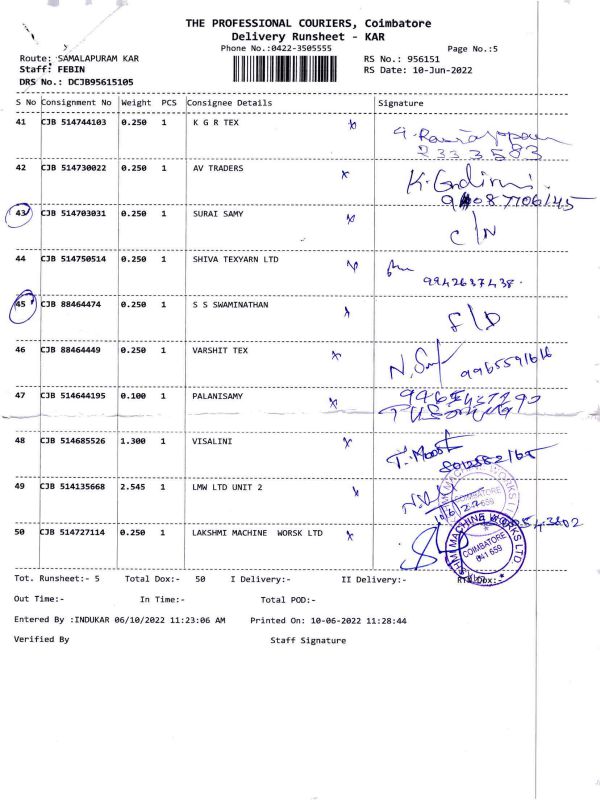 THE PROFESSIONAL COURIERS, Coimbatore
Delivery Runsheet - KAR
Phone No.:0422-3505555
Page No.:5
Route: SAMALAPURAM KAR
RS No.: 956151
Staff: FEBIN
RS Date: 10-Jun-2022
DRS No.: DCJB95615105
S No Consignment No Weight PCS Consignee Details Signature
41 CJB 514744103 0.250 1 K G R TEX
2333583
42 CJB 514730022 0.250 1 AV TRADERS
43 CJB 514703031 0.250 1 SURAI SAMY
C/N
44 CJB 514750514 0.250 1 SHIVA TEXYARN LTD
9942637438.
45 CJB 88464474 0.250 1 S S SWAMINATHAN
46 CJB 88464449 0.250 1 VARSHIT TEX
9965591616
47 CJB 514644195 0.100 1 PALANISAMY
48 CJB 514685526 1.300 1 VISALINI
49 CJB 514135668 2.545 1 LMW LTD UNIT 2
50 CJB 514727114 0.250 1 LAKSHMI MACHINE WORSK LTD
COIMBATORE
641 659
Tot. Runsheet:- 5 Total Dox:- 50 I Delivery:- II Delivery:-
Out Time:- In Time:- Total POD:-
Entered By :INDUKAR 06/10/2022 11:23:06 AM Printed On: 10-06-2022 11:28:44
Verified By Staff Signature